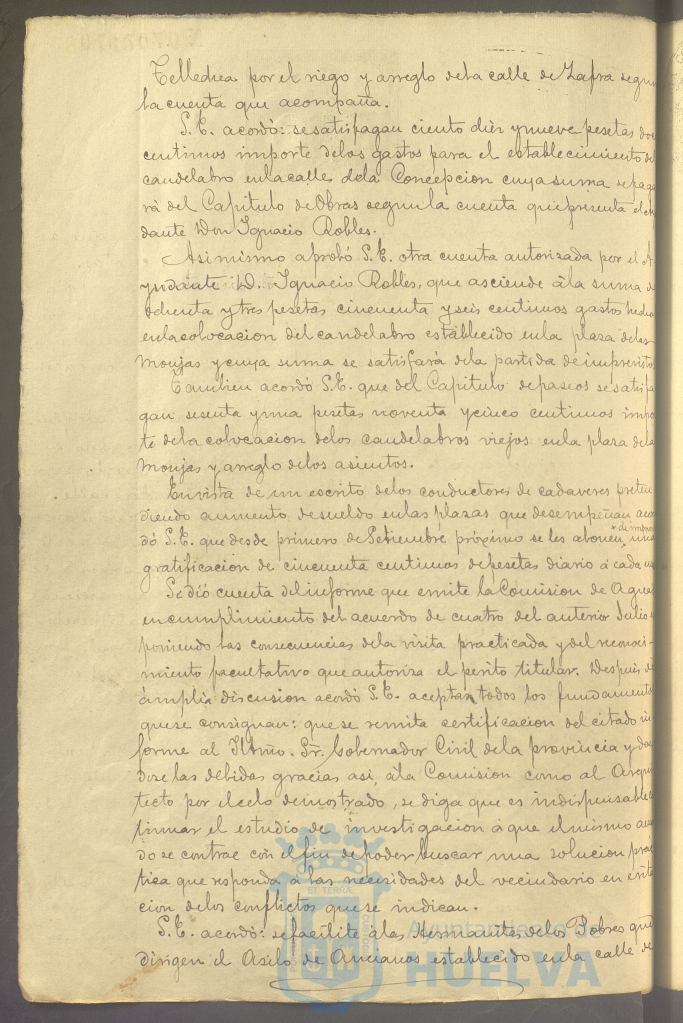 Tellechea por el riego y arreglo de la calle de Zafra segun
la cuenta que acompaña.
S. E. acordó: se satisfagan ciento diez y nueve pesetas dos
centimos importe de los gastos para el establecimiento del
candelabro en la calle de la Concepcion cuya suma se paga
rá del Capitulo de Obras segun la cuenta que presenta el Ayu
dante Don Ignacio Robles.
Asimismo aprobó S. E. otra cuenta autorizada por el A
yudante D. Ignacio Robles, que asciende á la suma de
ochenta y tres pesetas cincuenta y seis centimos gastos hechos
en la colocacion del candelabro establecido en la plaza de las
Monjas y cuya suma se satisfará de la partida de imprevistos
Tambien acordó S. E. que del Capitulo de paseos se satisfa
gan sesenta y una pesetas noventa y cinco centimos impor
te de la colocacion de los candelabros viejos en la plaza de las
Monjas y arreglo de los asientos.
En vista de un escrito de los conductores de cadaveres preten
diendo aumento de sueldo en las plazas que desempeñan acor
dó S. E. que desde primero de Setiembre próximo se les abonen una
gratificacion de cincuenta centimos de pesetas diario á cada uno
Se dió cuenta del informe que emite la Comision de Aguas
en cumplimiento del acuerdo de cuatro del anterior Julio ex
poniendo las consecuencias de la visita practicada y del reconoci
miento facultativo que autoriza el perito titular. Despues de
ámplia discusion acordó S. E. aceptar todos los fundamentos
que se consignan: que se remita certificacion del citado in
forme al Iltmo. Sr. Gobernador Civil de la provincia y dan
dose las debidas gracias asi, á la Comision como al Arqui
tecto por el celo demostrado, se diga que es indispensable con
tinuar el estudio de investigacion á que el mismo acuer
do se contrae con el fin de poder buscar una solucion prác
tica que responda á las necesidades del vecindario en evita
cion de los conflictos que se indican.
S. E. acordó: se facilite á las Hermanitas de los Pobres que
dirigen el Asilo de Ancianos establecido en la calle de
Ayuntamiento de
HUELVA